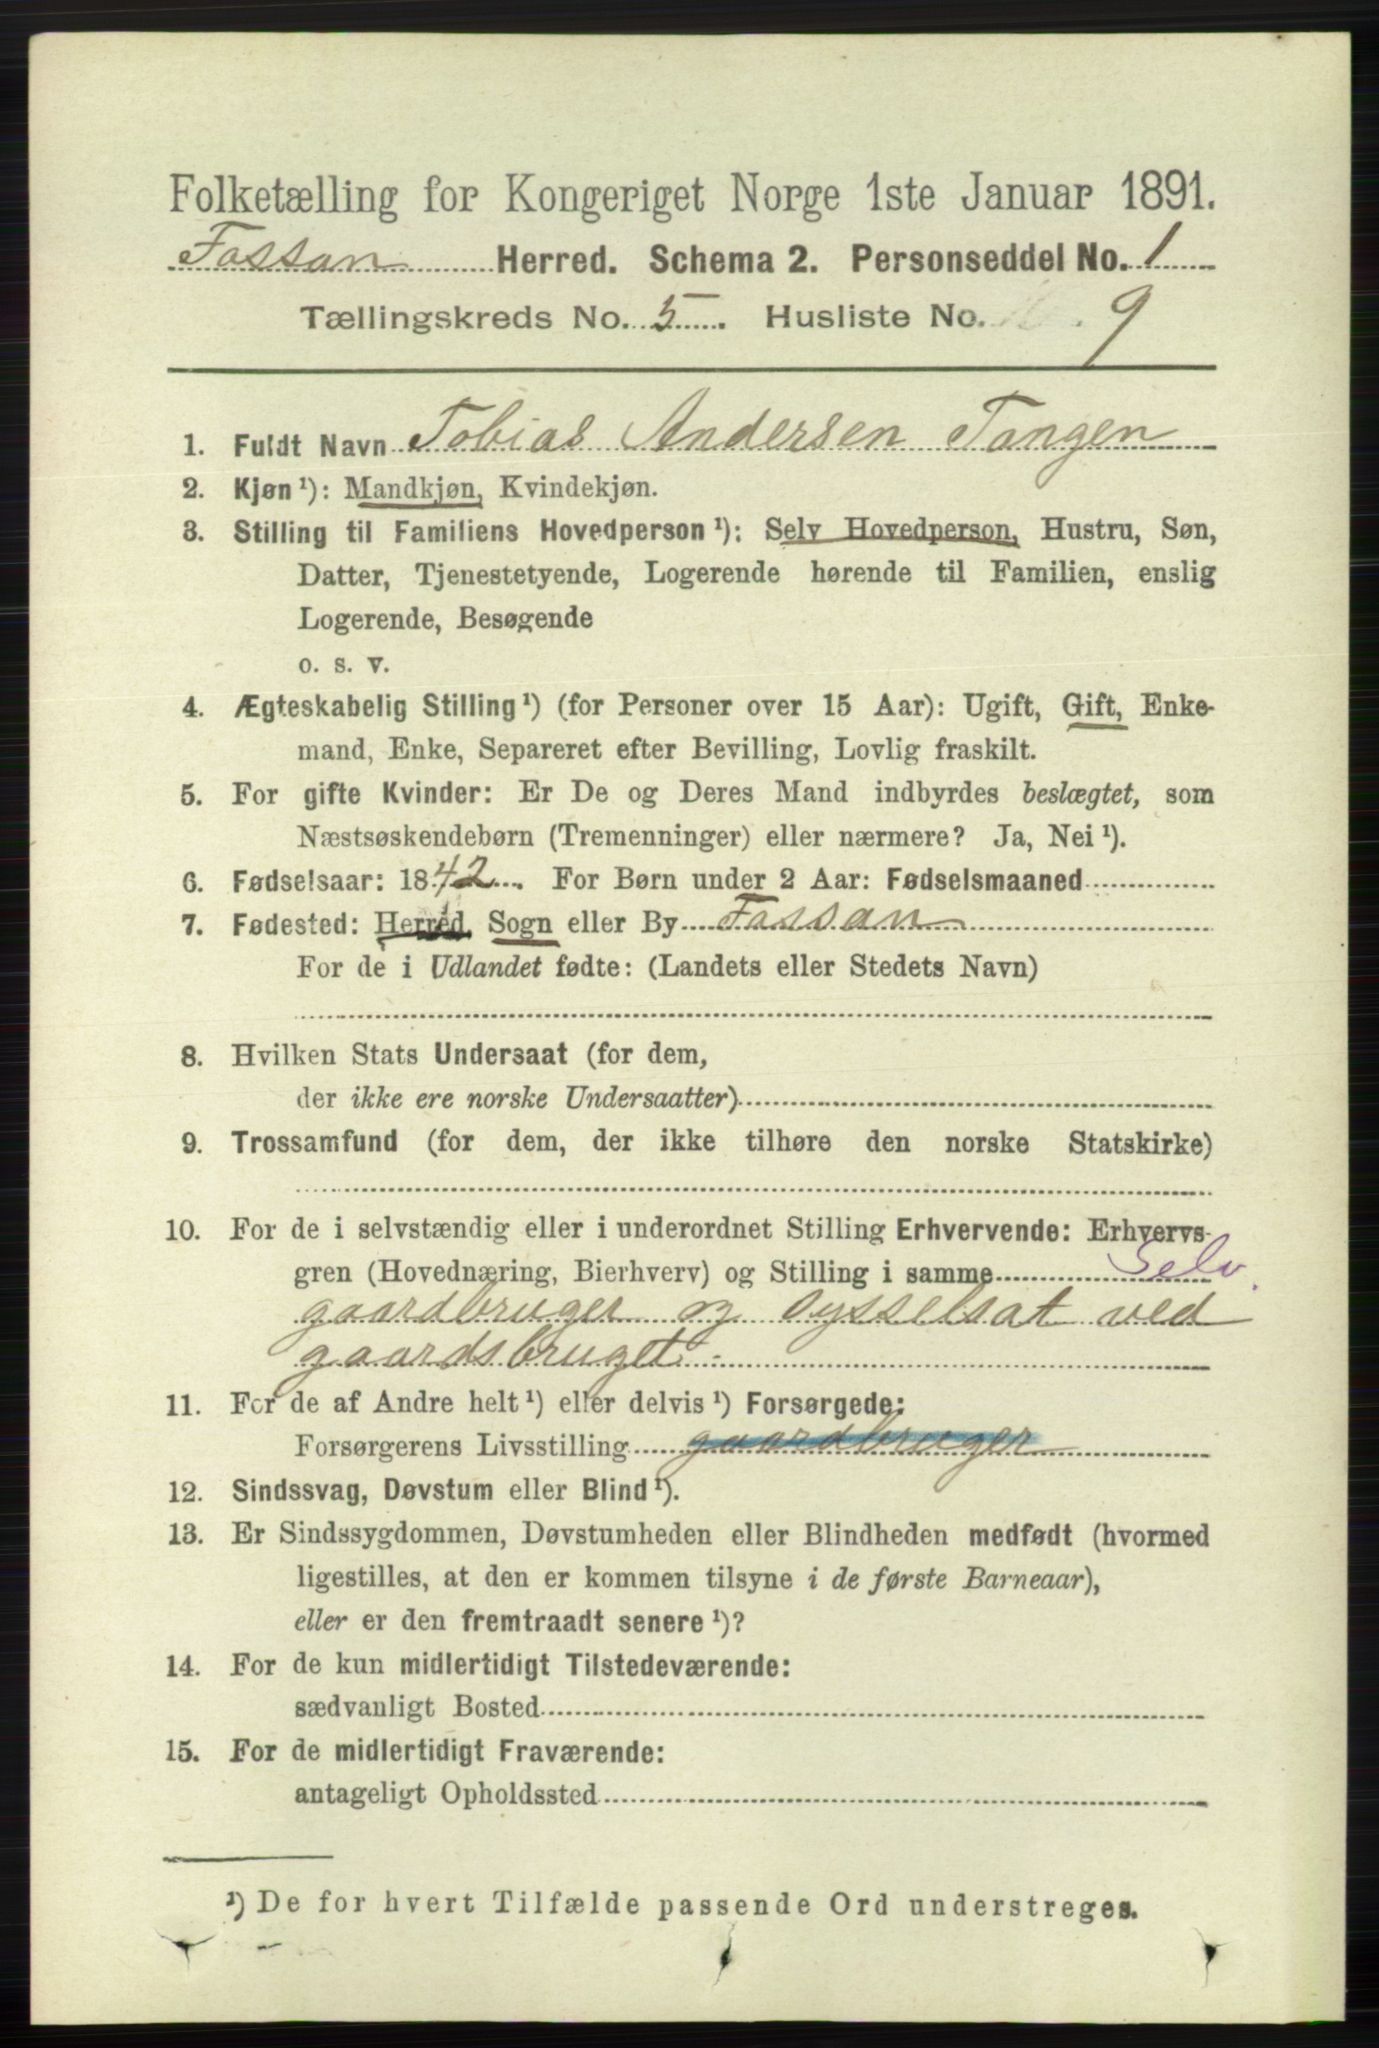 Folketælling for Kongeriget Norge 1ste Januar 1891.
Fossan Herred. Schema 2. Personseddel No. 1
Tællingskreds No. 5. Husliste No. 9
1. Fuldt Navn Tobias Andersen Tangen
2. Kjøn ¹): Mandkjøn, Kvindekjøn.
3. Stilling til Familiens Hovedperson ¹): Selv Hovedperson, Hustru, Søn,
Datter, Tjenestetyende, Logerende hørende til Familien, enslig
Logerende, Besøgende
o. s. v.
4. Ægteskabelig Stilling ¹) (for Personer over 15 Aar): Ugift, Gift, Enke-
mand, Enke, Separeret efter Bevilling, Lovlig fraskilt.
5. For gifte Kvinder: Er De og Deres Mand indbyrdes beslægtet, som
Næstsøskendebørn (Tremenninger) eller nærmere? Ja, Nei ¹).
6. Fødselsaar: 1842. For Børn under 2 Aar: Fødselsmaaned
7. Fødested: Herred, Sogn eller By Fossan
For de i Udlandet fødte: (Landets eller Stedets Navn)
8. Hvilken Stats Undersaat (for dem,
der ikke ere norske Undersaatter)
9. Trossamfund (for dem, der ikke tilhøre den norske Statskirke)
10. For de i selvstændig eller i underordnet Stilling Erhvervende: Erhvervs-
gren (Hovednæring, Bierhverv) og Stilling i samme Selv.
gaardbruger og sysselsat ved
gaardsbruget.
11. For de af Andre helt ¹) eller delvis ¹) Forsørgede:
Forsørgerens Livsstilling gaardbruger
12. Sindssvag, Døvstum eller Blind ¹).
13. Er Sindssygdommen, Døvstumheden eller Blindheden medfødt (hvormed
ligestilles, at den er kommen tilsyne i de første Barneaar),
eller er den fremtraadt senere ¹)?
14. For de kun midlertidigt Tilstedeværende:
sædvanligt Bosted
15. For de midlertidigt Fraværende:
antageligt Opholdssted
¹) De for hvert Tilfælde passende Ord understreges.